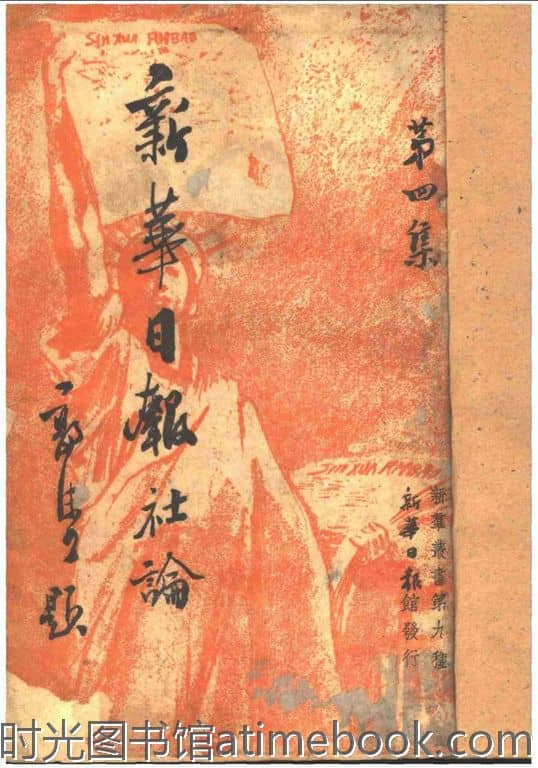 SIN XUA RHBAO
第四集
新華日報社論
題
SIN XUA RHBAO
新羣叢書第九種
新華日报館發行
时光图书馆atimebook.com